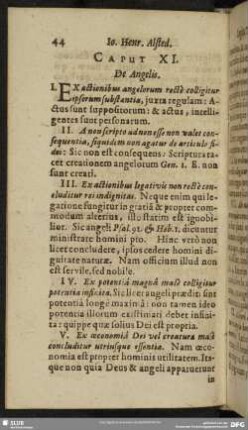 44 Io. Henr. Alsted.
CAPUT XI.
De Angelis.
I. EX actionibus angelorum rectè colligitur
ipsorum substantia, juxta regulam: A-
ctus sunt suppositorum: & actus, intelli-
gentes sunt personarum.
II. A non scripto ad non esse non valet con-
sequentia, siquidem non agatur de articulo fi-
dei: Sic non est consequens: Scriptura ta-
cet creationem angelorum Gen. 1. E. non
sunt creati.
III. Ex actionibus legativis non rectè con-
cluditur rei indignitas. Neque enim qui le-
gatione fungitur in gratiã & propter com-
modum alterius, isto statim est ignobi-
lior. Sic angeli Psal. 91. & Heb. 1. dicuntur
ministrare homini pio. Hinc verò non
licet concludere, ipsos cedere homini di-
gnitate naturæ. Nam officium illud non
est servile, sed nobile.
IV. Ex potentiâ magnâ malè colligitur
potentia infinita. Sic licet angeli præditi sint
potentiâ longè maximâ: non tamen ideo
potentia illorum existimari debet infini-
ta: quippe quæ solius Dei est propria.
V. Ex œconomiâ Dei vel creaturæ malè
concluditur utriusque essentia. Nam œco-
nomia est propter hominis utilitatem. Ita-
que non quia Deus & angeli apparuerunt
in
SLUB
DFG